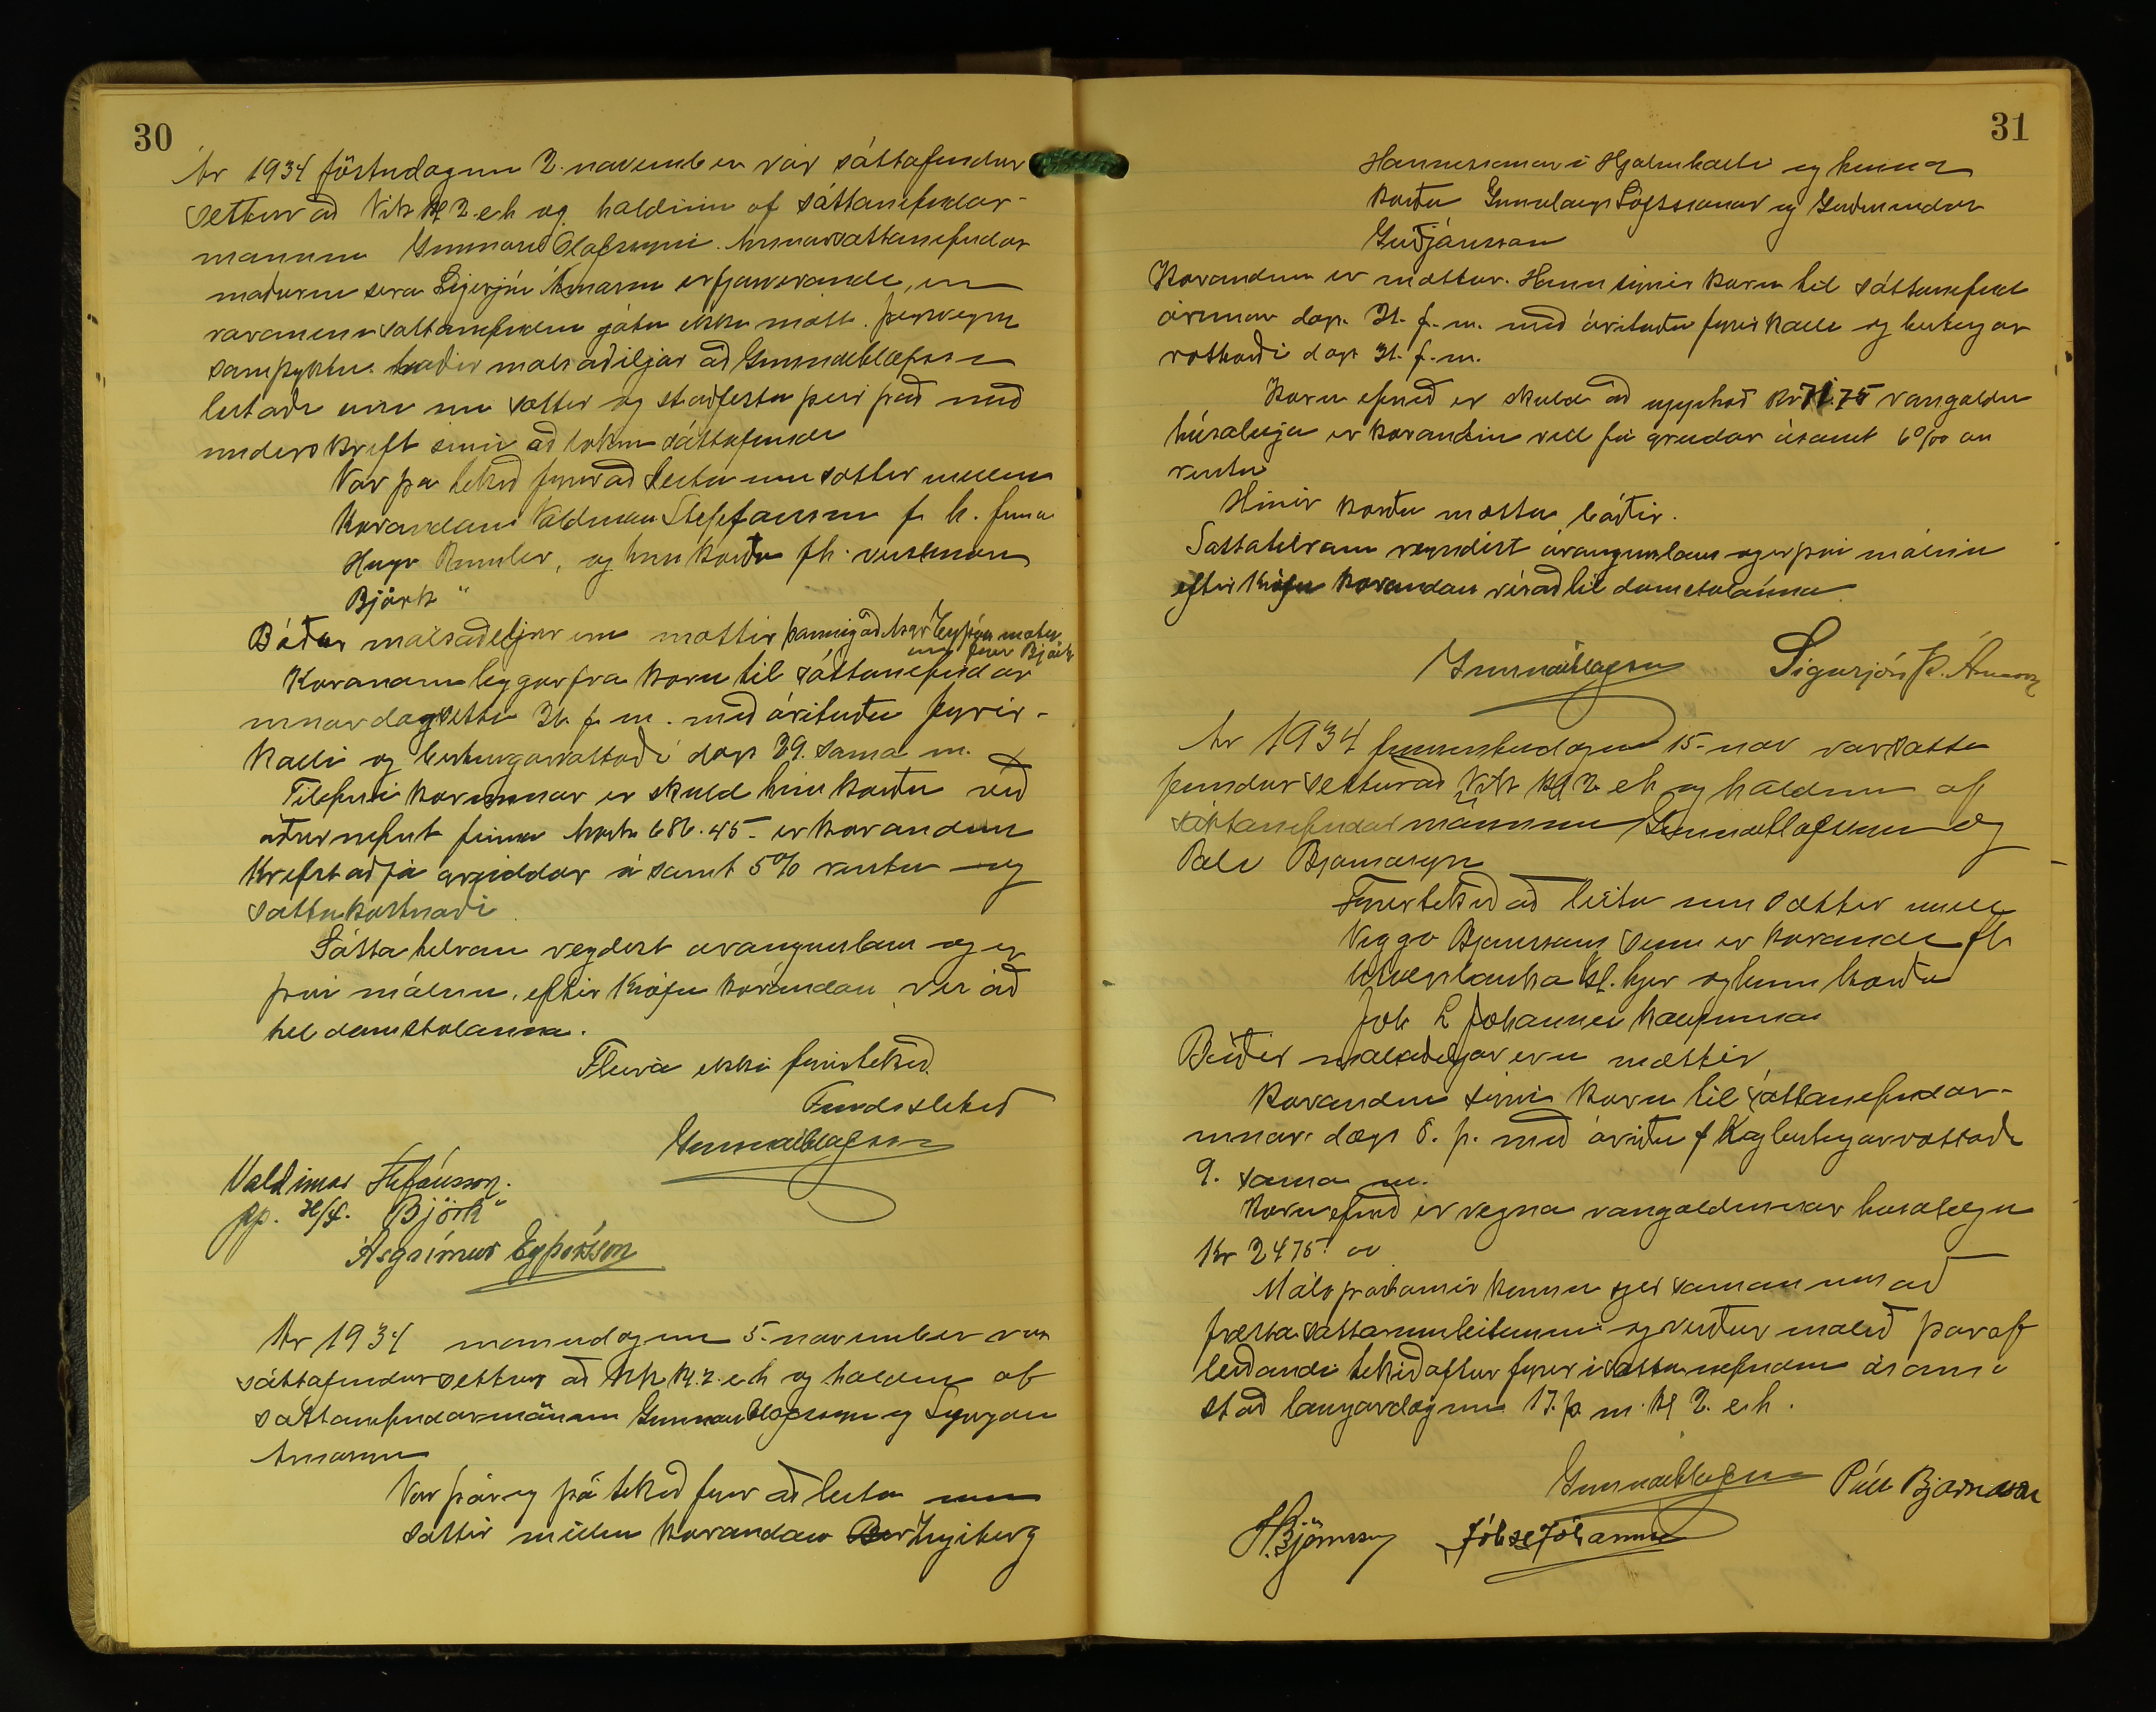 30
Ár 1934 föstudaginn 2. november var sáttafundur
settur að Vík kl 2 e.h og haldinn af sáttanefndar-
mannum Gunnari Olafssyni. Annar sattanefndar
maðurinn sera Sigurjón Árnason er fjarverandi, en
varamenn sattanefndar gátu ekki mætt. Þessvegna
samþyktu báðir málsaðiljar að Gunnar Olafsson
leitaði einn um sættir og staðfestu þeir það með
underskrift sinni að loknum sáttafundi
Var þa tekið fyrir að leita um sættir millum
Kærandans Valdimar Stefansson f. h. firma
Hugo , og hins kærða fh. verslunar
Björk"
Báðir málsaðiljar eru mættir þannig að Asgr Eyþórs mætir
fyrir Björk
Kærandinn leggur fra kæru til sáttanefndar
innar dagsetta 26. f. m. með árituðu fyrir-
kalli og birtingarvottorði dags 29. sama m.
Tilefni kærunnar er skuld hins kærða við
aðurnefnt firma 686.45 er kærandinn
krefst að fá greiddar ásamt 5% rentu og
sattakostnaði
Sáttatilraun reyndist arangurslaus og er
því málinu, eftir kröfu kærandans, vísað
til domstolanna.
Fleira ekki fyrirtekið.
Fundi slitið
Gunnar Olafsson
Valdimar Stefánsson.
pp. H/f. Björk"
Ásgrímur Eyþórsson
Ár 1934 manudaginn 5. november var
sáttafundur settur að Vík kl. 2. e h og haldinn af
sáttanefndarmönnum Gunnar Olafssyni og Sigurjóni
Arnasyni
Var þar og þá tekið fyrir að leita um
sattir millum kærandans Ber Ingibergs
31
Hannessonar i Hjálmholti og hinna
kærðu Gunnlaugs Loftssonar og Guðmundar
Guðjónsson
Kærandinn er mættur. Hann sýnir kæru til sáttanefnd
arinnar dags. 31. f. m. með árituðu fyrirkalli og birtingar
vottorði dags 31. f. m.
Kæruefnið er skuld að upphæð kr 71.75 vangoldin
húsaleiga er kærandinn vill fá greiddar ásamt 6% í
rentu
Hinir kærðu mættu báðir.
Sattatilraun reyndist árangurslaus og er því málinu
eftir kröfu kærandans vísað til domstolanna
Gunnar Olafsson Sigurjón Þ. Árnason
Ár 1934 fimmtudaginn 15. nov var satta
fundur settur að Vík kl 2 eh og haldinn af
sáttanefndarmönnum Gunnar Olafssyni og
Pali Bjarnasyni
Fyrirtekið að leita um sættir millu
Viggo Bjornssons sem er kærandi fh
Utvegsbanka Isl. hjer og hinn kærða
Joh L Johannes kaupmann
Báðir malsaðiljar eru mættir
Kærandinn sýnir kæru til sáttanefndar-
innar dags 8. þ. með árituðu f k og birtingarvottorði
9. sama m.
Kæruefnið er vegna vangoldinnar husaleigu
Kr 2475. oo
Málspartarnir komu sjer saman um að
fresta sattaumleitunum og verður málið þar af
leiðandi tekið aftur fyrir i sattanefndinni á sama
stað laugardaginn 17. þ m. kl 2. e.h.
Gunnar Olafsson Páll Bjarnason
V. Björnsson Jóh Jóhannes